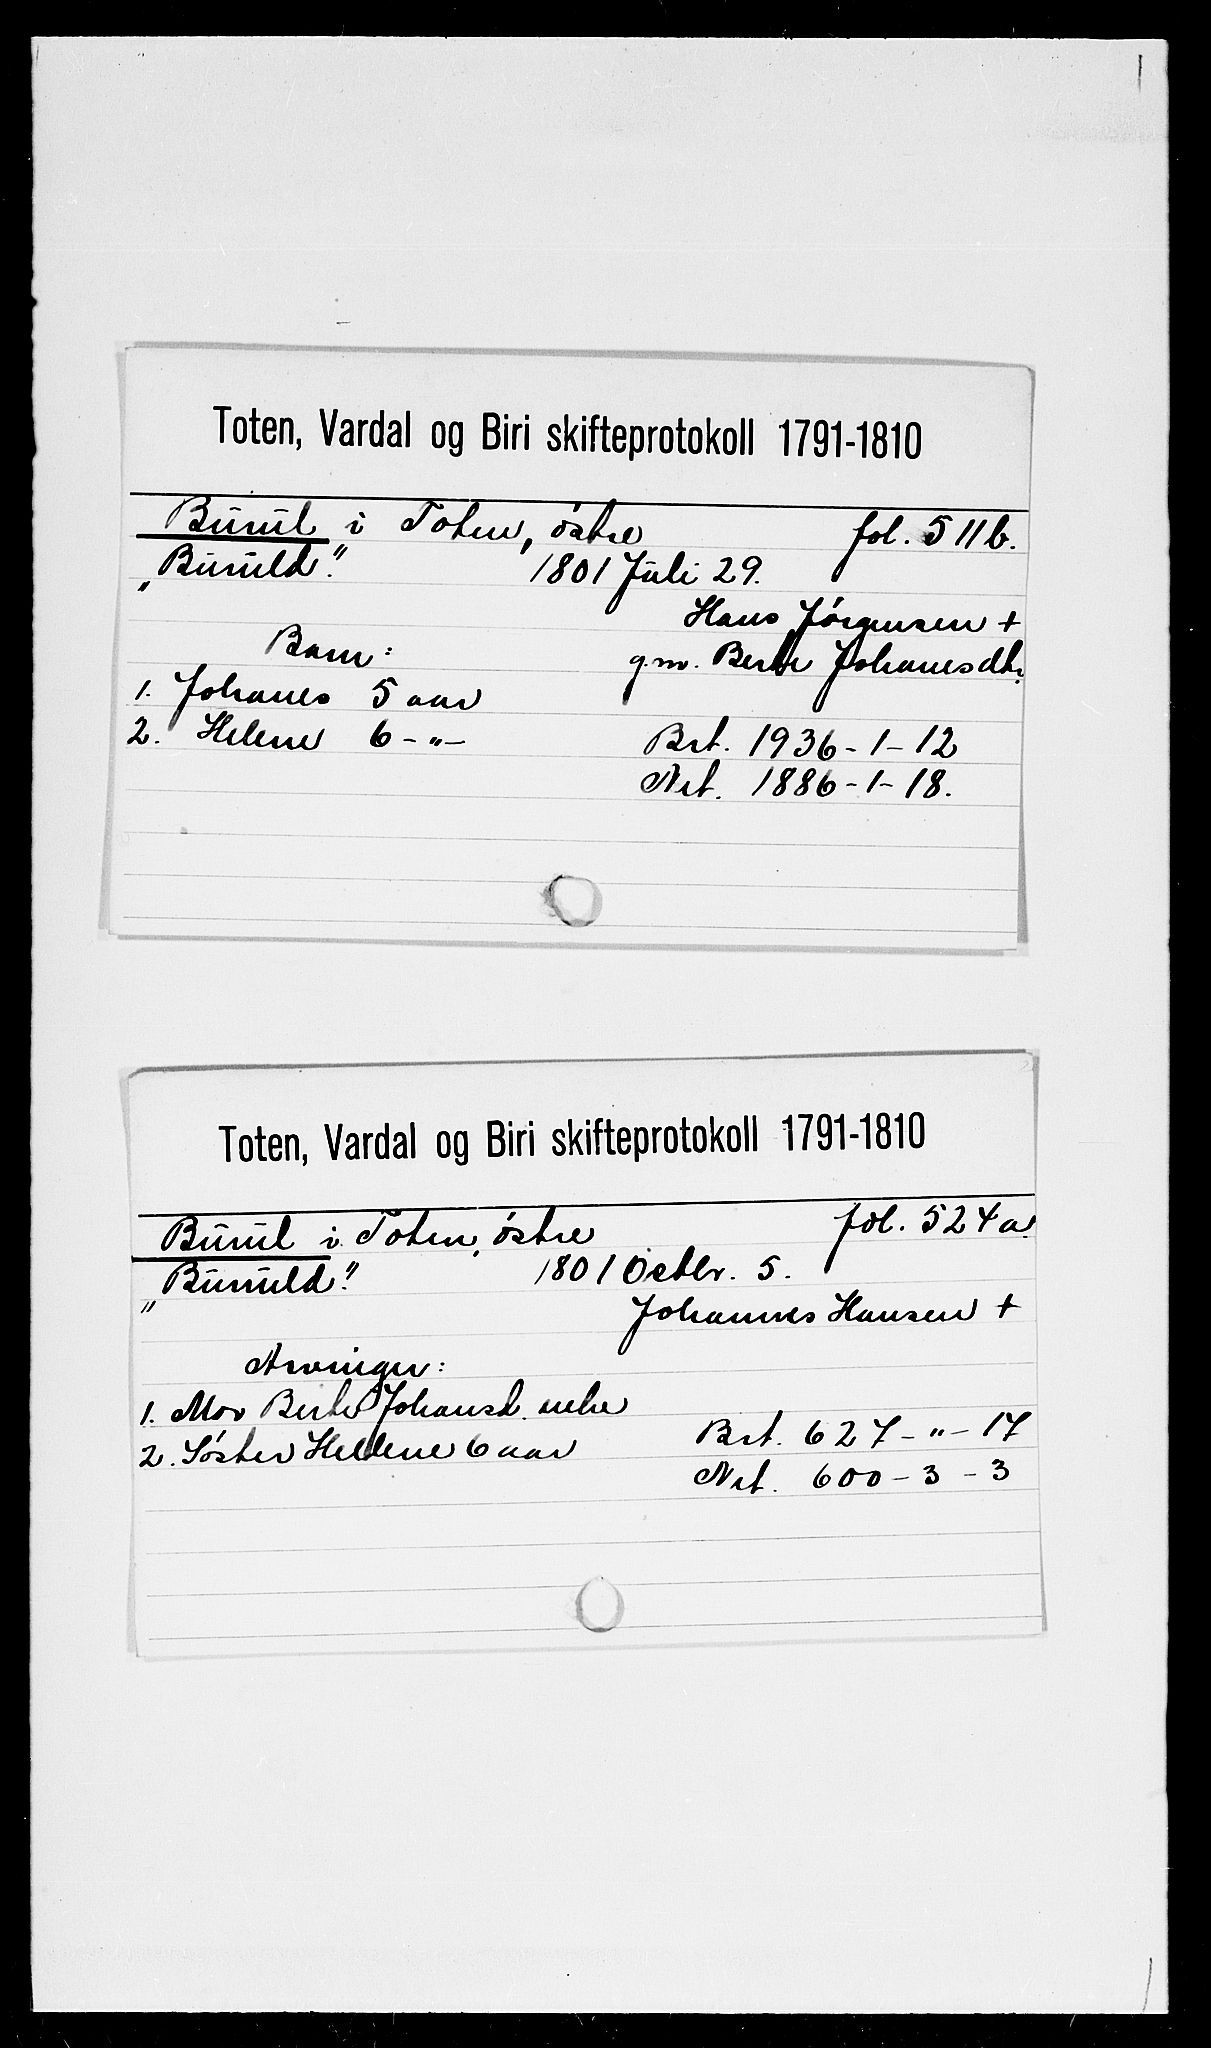 Toten, Vardal og Biri skifteprotokoll 1791-1810
Burul i Toten, østre fol. 511b.
„Buruld." 1801 Juli 29.
Hans Jørgensen +
Barn: g.m. Berte Johanesdtr.
1. Johanes 5 aar
2. Helene 6 - „ - Brt. 1936 - 1 - 12
Net. 1886 - 1 - 18.
Toten, Vardal og Biri skifteprotokoll 1791-1810
Burul i Toten, østre fol. 524a.
„Buruld." 1801 Octbr. 5.
Johannes Hansen +
Arvinger:
1. Mor Berte Johansd. enke
2. Søster Hellene 6 aar Brt. 627 - „ - 17
Net. 600 - 3 - 3